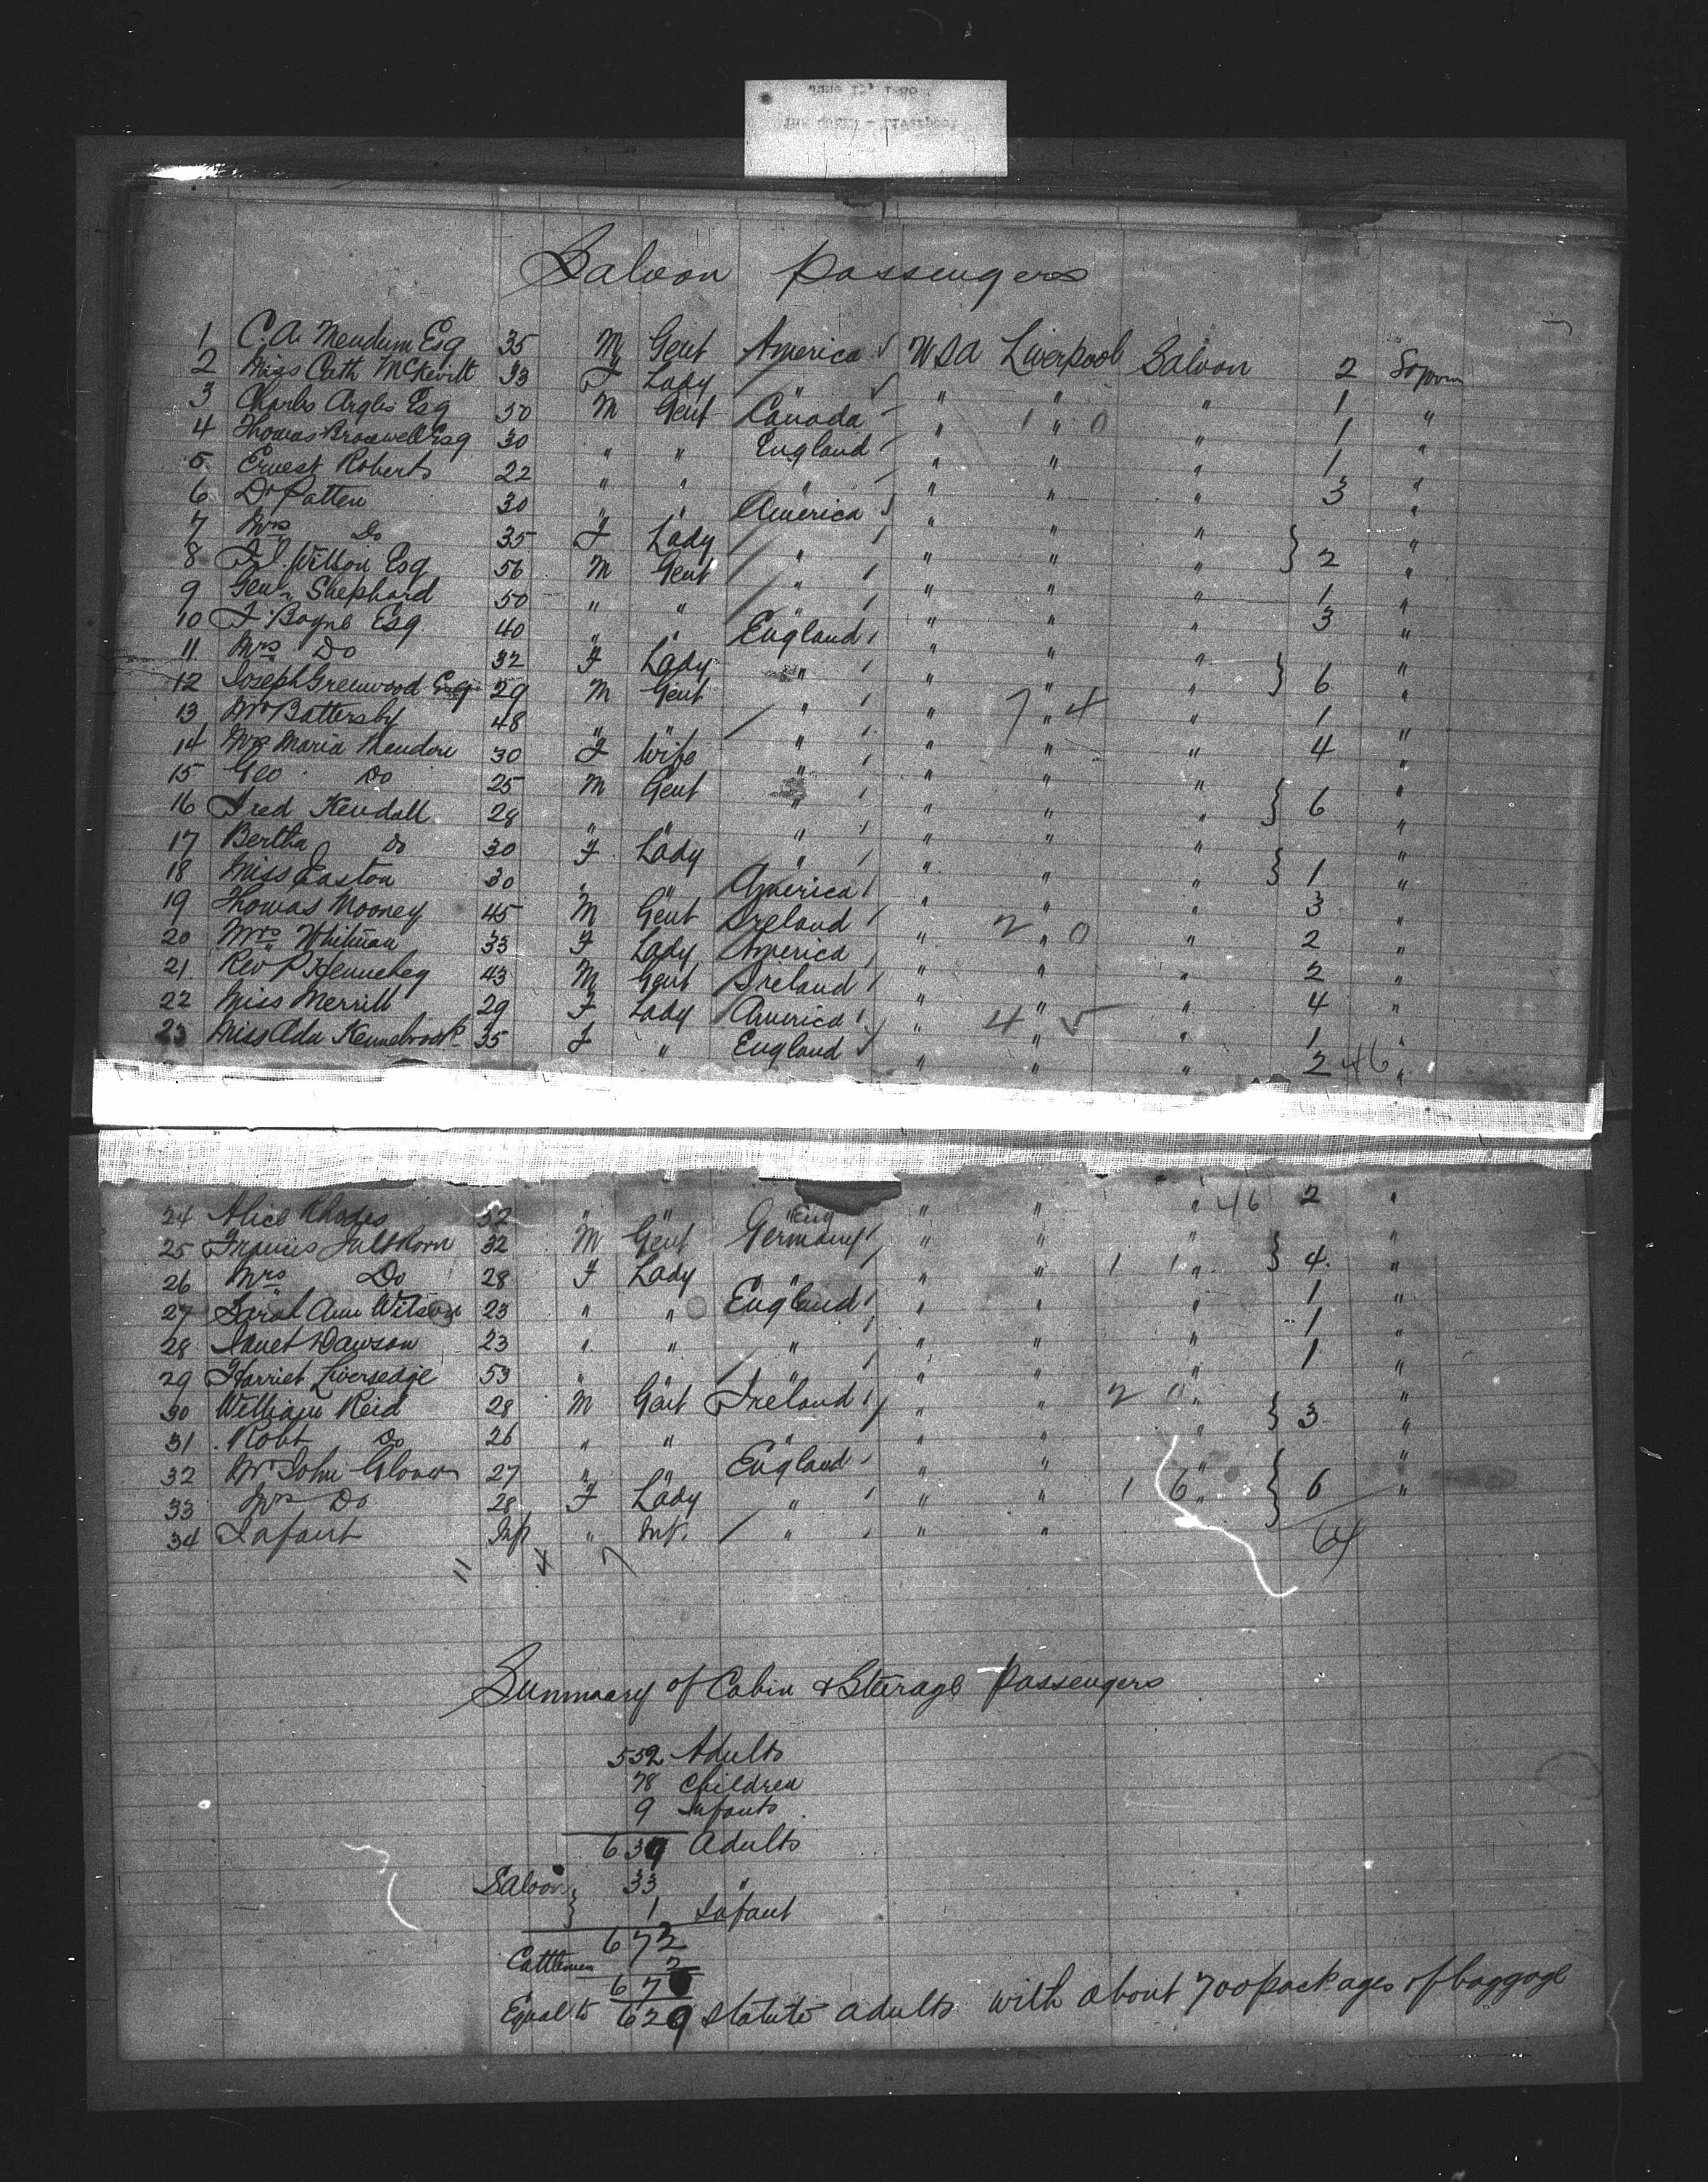 Saloon Passengers
1 C. A. Mendum Esq 35 M Gent America USA Liverpool Saloon 2
2 Miss Cath McKevitt 33 F Lady " " " " 1 "
3 Charles Esq 50 M Gent Canada " 1 " 0 " 1 "
4 Thomas Esq 30 " " England " " " 1 "
5 Ernest Roberts 22 " " " " " " 3 "
6 Dr Patten 30 " " America " " " "
7 Mrs Do 35 F Lady " " " " } 2 "
8 Wilson Esq 56 M Gent " " " " 1 "
9 Genl Shephard 50 " " " " " " 3 "
10 F. Boyne Esq 40 " " England " " " "
11 Mrs Do 32 F Lady " " " " } 6 "
12 Joseph Greenwood Esq 29 M Gent " " 7 " 4 " 1 "
13 Mr Battersby 48 " " " " " " 4 "
14 Mrs Maria 30 F Wife " " " " "
15 Geo Do 25 M Gent " " " " } 6 "
16 Fred Kendall 28 " " " " " " "
17 Bertha Do 30 F Lady " " " " } 1 "
18 Miss Easton 30 " " America " " " 3 "
19 Thomas Mooney 45 M Gent Ireland " 2 " 0 " 2 "
20 Mrs Whitman 33 F Lady America " " " 2 "
21 Rev P Hennebey 43 M Gent Ireland " " " 4 "
22 Miss Merrill 29 F Lady America " 4 " " 1 "
23 Miss Ada Kennebrook 35 F " England " " " 2 46 "
24 Alice Rhodes 32 " " " Eng " " " 46 2 "
25 Francis 32 M Gent Germany " " "
26 Mrs Do 28 F Lady " " " " 1 1 " } 4 "
27 Sarah Ann Wilson 23 " " England " " " 1 "
28 Janet Dawson 23 " " " " " " 1 "
29 Harriet Liversedge 53 " " " " " " 1 "
30 William Reid 28 M Gent Ireland " " 2 0 " "
31 Robt Do 26 " " " " " " } 3 "
32 Mr John Glover 27 " " England " " " "
33 Mrs Do 28 F Lady " " " 1 6 " } 6 "
34 Infant Inf " Inf. " " " 64
11 4 7
Summary of Cabin & Steerage Passengers
552 Adults
78 Children
9 Infants
639 Adults
Saloon } 33 "
1 Infant
673
Cattlemen
67
Equal to 629 statute adults with about 700 packages of baggage